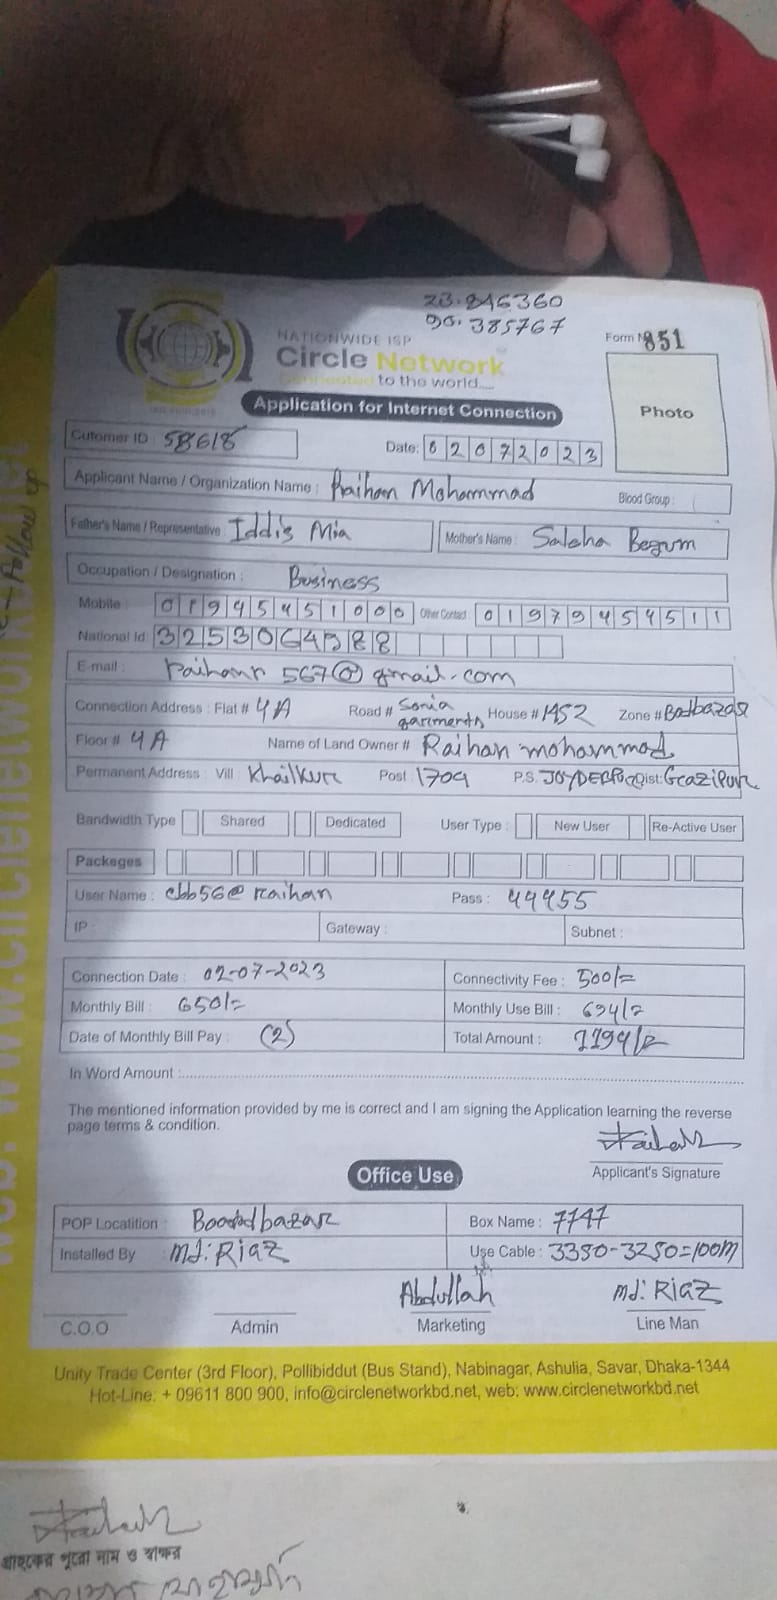 23.846360
90.385767
NATIONWIDE ISP
Circle Network
Connected to the world....
Form N 851
Photo
Application for Internet Connection
Cutomer ID : 58618
Date: 02072023
Applicant Name / Organization Name : Raihan Mohammad
Blood Group :
Father's Name / Representative : Iddis Mia
Mother's Name : Saleha Begum
Occupation / Designation : Business
Mobile : 01945451000 Other Contact 01979454511
National Id: 3253064988
E-mail : raihanr567@gmail.com
Connection Address : Flat # 4A Road # Sonia garments House # 1452 Zone # Bodbazar
Floor # 4A Name of Land Owner # Raihan mohammad
Permanent Address : Vill : Khailkur Post : 1704 P.S. JOYDEBPUR Dist: Gazipur
Bandwidth Type Shared Dedicated User Type : New User Re-Active User
Packeges
User Name : cbb56@raihan Pass : 44455
IP : Gateway : Subnet :
Connection Date : 02-07-2023 Connectivity Fee : 500/=
Monthly Bill : 650/= Monthly Use Bill : 694/=
Date of Monthly Bill Pay : (2) Total Amount : 1194/=
In Word Amount :
The mentioned information provided by me is correct and I am signing the Application learning the reverse
page terms & condition.
Applicant's Signature
Office Use
POP Locatition : Boardbazar Box Name : 7747
Installed By : Md: Riaz Use Cable : 3350-3250=100m
Abdullah Md: Riaz
C.O.O Admin Marketing Line Man
Unity Trade Center (3rd Floor), Pollibiddut (Bus Stand), Nabinagar, Ashulia, Savar, Dhaka-1344
Hot-Line: + 09611 800 900, info@circlenetworkbd.net, web: www.circlenetworkbd.net
web: www.circlenetworkbd.net
Follow up
গ্রাহকের পুরো নাম ও স্বাক্ষর